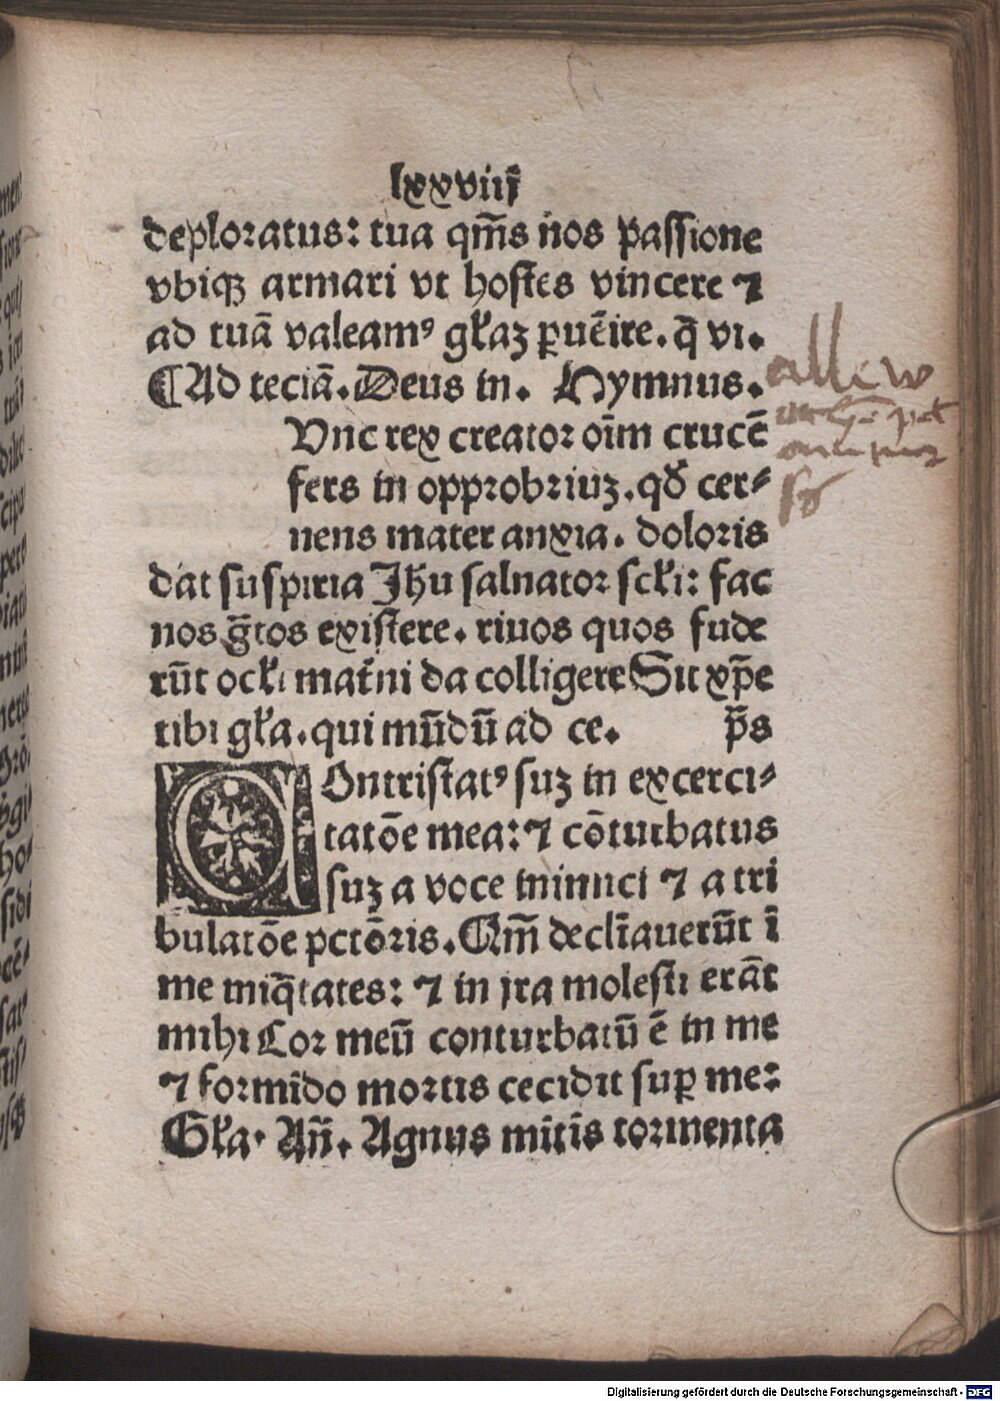 lxxviiij
deploratus: tua qm̄s nos passione
vbiqꝫ armari vt hostes vincere ⁊
ad tuā valeamꝰ gl̄aꝫ ꝑuēire. q̄ vi.
¶Ad tecīā. Deus in. Hymnus.
Unc rex creator oīm crucē
fers in opprobriuꝫ. qđ cer⸗
nens mater anxia. doloris
dat suspiria Jhu saluator scl̄i: fac
nos ḡtos existere. riuos quos fude
rūt ocl̄i mat̄ni da colligere Sit xp̄e
tibi gl̄a. qui mūdū ad ce. p̄s
Ontristatꝰ suꝫ in excerci⸗
tatōe mea: ⁊ cōturbatus
suꝫ a voce inimici ⁊ a tri
bulatōe pctōris. Qm̄ declīauerūt ī
me iniq̄tates: ⁊ in jra molesti erāt
mihi Cor meū conturbatū ē in me
⁊ formīdo mortis cecidit suꝑ me:
Gl̄a. An̄. Agnus mitis tormenta
Digitalisierung gefördert durch die Deutsche Forschungsgemeinschaft - DFG